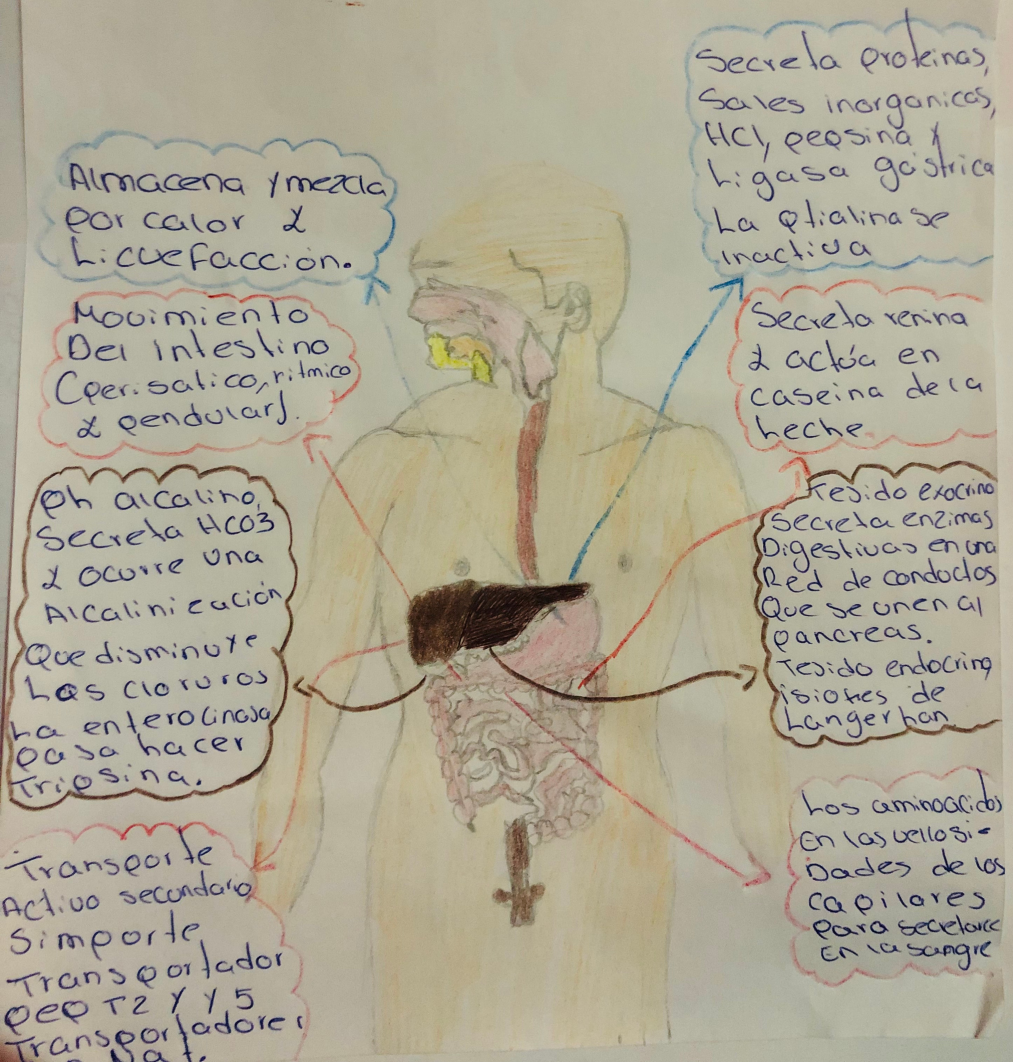 Almacena y mezcla
por calor y
Licuefacción.
Movimiento
Del intestino
(perisalico, ritmico
y pendular).
Ph alcalino,
Secreta HCO3
y ocurre una
Alcalinización
Que disminuye
Los cloruros
La enterocinasa
pasa hacer
Tripsina.
Transporte
Activo secundario
Simporte
Transportador
PEP T2 Y Y 5
Transportadores
Secreta proteinas,
Sales inorganicas,
HCl, pepsina y
Ligasa gástrica
La ptialina se
inactiva
Secreta renina
y actúa en
caseina de la
Leche
Tejido exocrino
secreta enzimas
Digestivas en una
Red de conductos
Que se unen al
pancreas.
Tejido endocrino
islotes de
Langerhan
Los aminoacidos
En las vellosi-
Dades de los
capilares
para secretarce
En la sangre